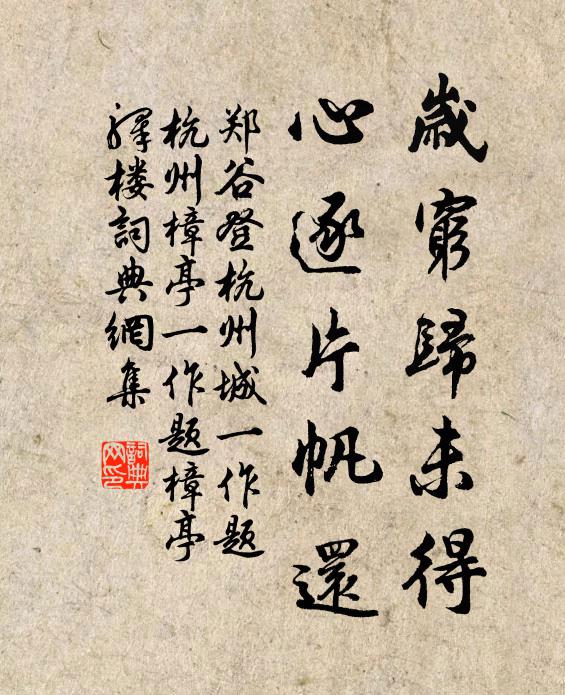 歳窮歸未得
心逐片帆還
郑谷登杭州城一作题
杭州樟亭一作题樟亭
驛楼詞典網集
詞典網印